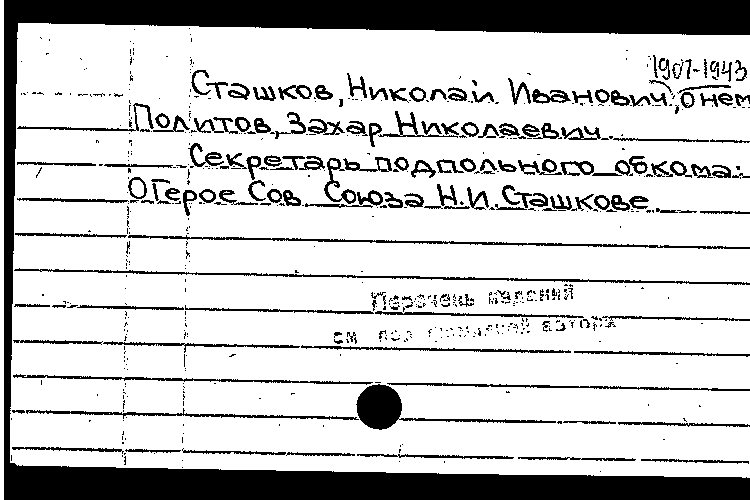 1907-1943
Сташков, Николай Иванович, о нем
Политов, Захар Николаевич.
Секретарь подпольного обкома:
О Герое Сов. Союза Н.И. Сташкове.
Перечень изданий
см под фамилией автора